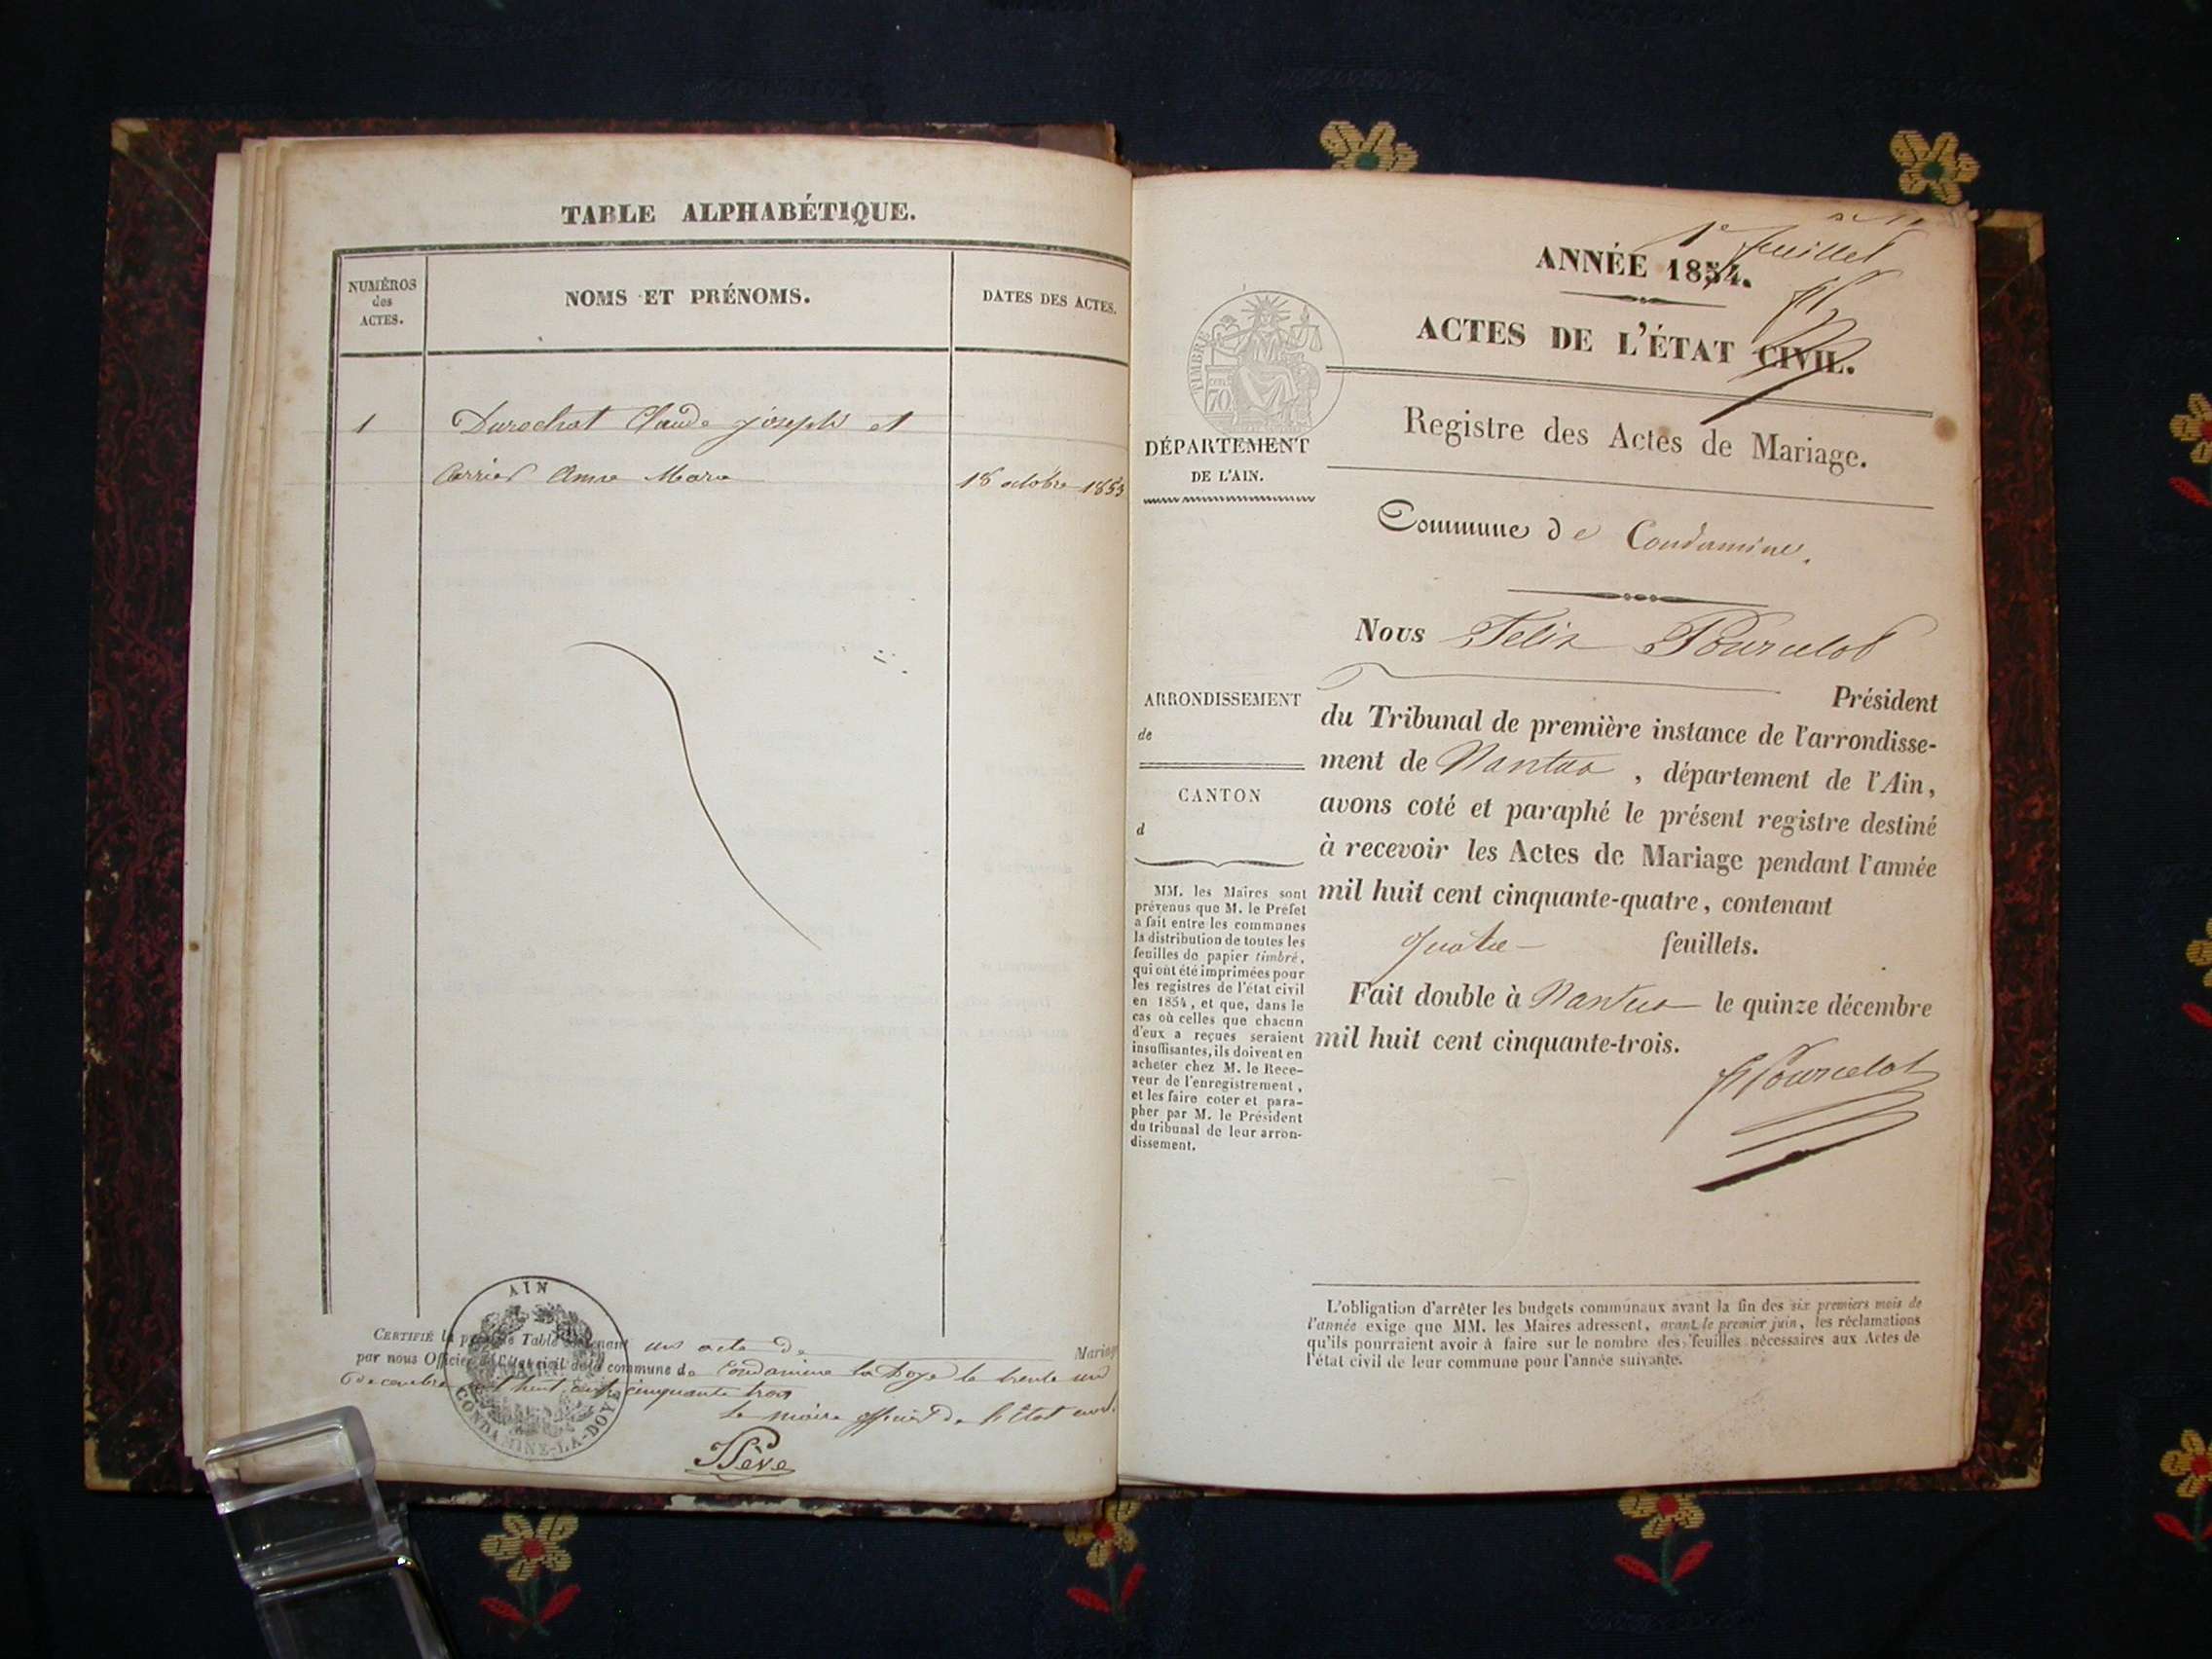 TABLE ALPHABÉTIQUE.
NUMÉROS
des
ACTES.
NOMS ET PRÉNOMS.
DATES DES ACTES.
1 Durochat Claude joseph et
Carrier Anne Marie 18 octobre 1853
CERTIFIÉ la présente Table contenant un acte de Mariage
par nous Officier de l'état civil de la commune de Condamine la Doye le trente un
décembre mil huit cent cinquante trois
Le maire officier de l'État civil
AIN
CONDAMINE-LA-DOYE
1er feuillet
ANNÉE 1854.
ACTES DE L'ÉTAT CIVIL.
TIMBRE
70
cent
DÉPARTEMENT
DE L'AIN.
Registre des Actes de Mariage.
Commune de Condamine.
Nous Felix Pourcelot
Président
du Tribunal de première instance de l'arrondisse-
ment de Nantua, département de l'Ain,
avons coté et paraphé le présent registre destiné
à recevoir les Actes de Mariage pendant l'année
mil huit cent cinquante-quatre, contenant
quatre feuillets.
Fait double à Nantua le quinze décembre
mil huit cent cinquante-trois.
Pourcelot
ARRONDISSEMENT
de
CANTON
d
MM. les Maires sont
prévenus que M. le Préfet
a fait entre les communes
la distribution de toutes les
feuilles de papier timbré,
qui ont été imprimées pour
les registres de l'état civil
en 1854, et que, dans le
cas où celles que chacun
d'eux a reçues seraient
insuffisantes, ils doivent en
acheter chez M. le Rece-
veur de l'enregistrement,
et les faire coter et para-
pher par M. le Président
du tribunal de leur arron-
dissement.
L'obligation d'arrêter les budgets communaux avant la fin des six premiers mois de
l'année exige que MM. les Maires adressent, avant le premier juin, les réclamations
qu'ils pourraient avoir à faire sur le nombre des feuilles nécessaires aux Actes de
l'état civil de leur commune pour l'année suivante.